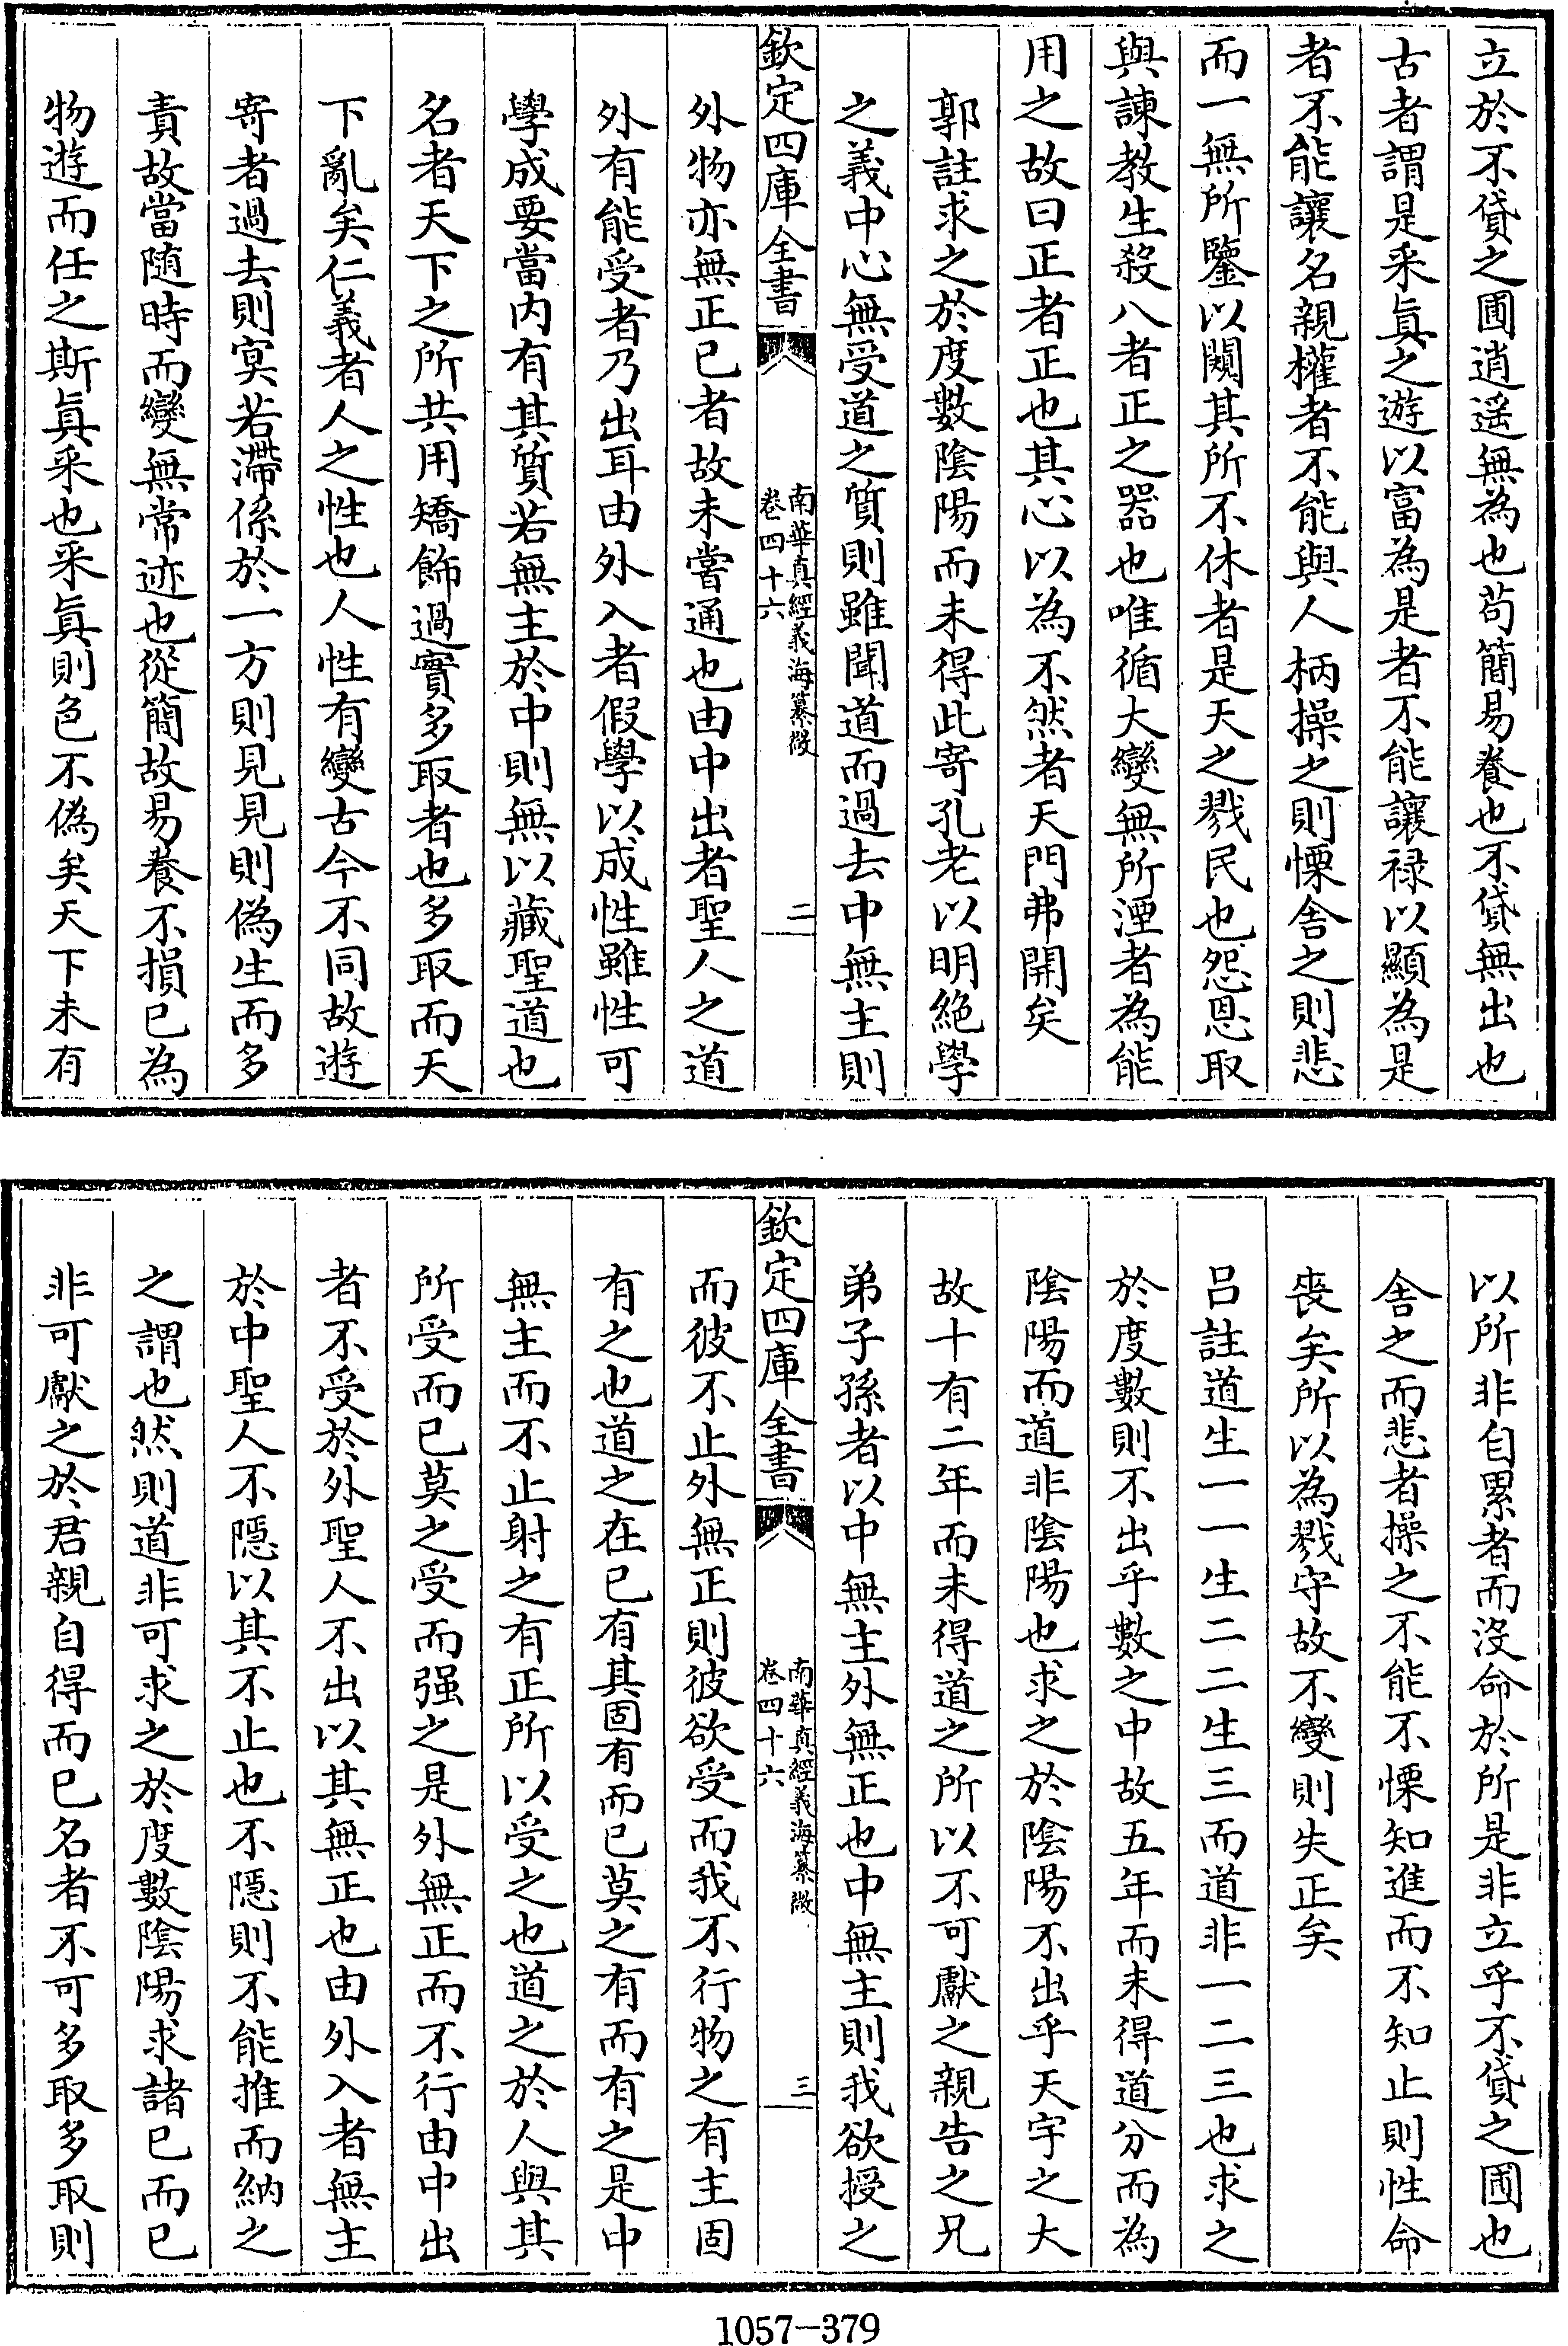 立於不貸之圃逍遥無為也苟簡易養也不貸無出也
古者謂是采眞之遊以富為是者不能讓禄以顯為是
者不能讓名親權者不能與人柄操之則慄舍之則悲
而一無所鑒以闚其所不休者是天之戮民也怨恩取
與諫教生殺八者正之器也唯循大變無所湮者為能
用之故曰正者正也其心以為不然者天門弗開矣
郭註求之於度數陰陽而未得此寄孔老以明絶學
之義中心無受道之質則雖聞道而過去中無主則
欽定四庫全書
南華真經義海纂微
卷四十六
二
外物亦無正已者故未嘗通也由中出者聖人之道
外有能受者乃出耳由外入者假學以成性雖性可
學成要當内有其質若無主於中則無以藏聖道也
名者天下之所共用矯飾過實多取者也多取而天
下亂矣仁義者人之性也人性有變古今不同故遊
寄者過去則冥若滯係於一方則見見則偽生而多
責故當随時而變無常迹也從簡故易養不損已為
物遊而任之斯眞采也采眞則色不偽矣天下未有
以所非自累者而沒命於所是非立乎不貸之圃也
舍之而悲者操之不能不慄知進而不知止則性命
喪矣所以為戮守故不變則失正矣
吕註道生一一生二二生三而道非一二三也求之
於度數則不出乎數之中故五年而未得道分而為
陰陽而道非陰陽也求之於陰陽不出乎天宇之大
故十有二年而未得道之所以不可獻之親告之兄
弟子孫者以中無主外無正也中無主則我欲授之
欽定四庫全書
南華真經義海纂微
卷四十六
三
而彼不止外無正則彼欲受而我不行物之有主固
有之也道之在已有其固有而已莫之有而有之是中
無主而不止射之有正所以受之也道之於人與其
所受而已莫之受而强之是外無正而不行由中出
者不受於外聖人不出以其無正也由外入者無主
於中聖人不隱以其不止也不隱則不能推而納之
之謂也然則道非可求之於度數陰陽求諸已而已
非可獻之於君親自得而已名者不可多取多取則
1057-379